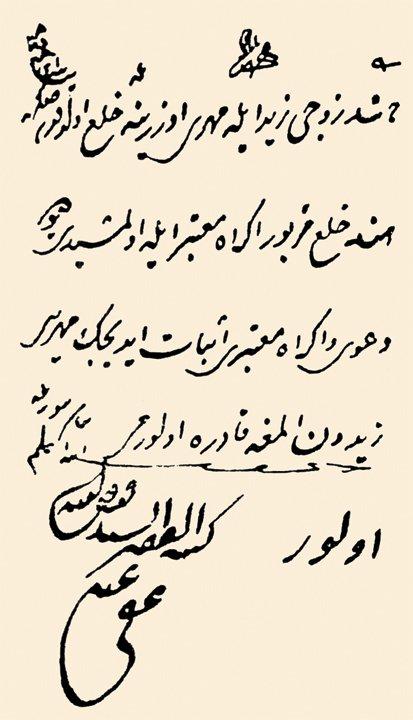 هند زوجی زید ایله مهری اوزرینه خلع اولدوقدنصکره
هند خلع مزبور اکراه معتبر ایله اولمشیدی دیو
دعوی و اکراه معتبری اثبات ایدیجک مهرینی
زیددن المغه قادره اولورمی
اولور
كتبه الفقير السيد
عفی عنه